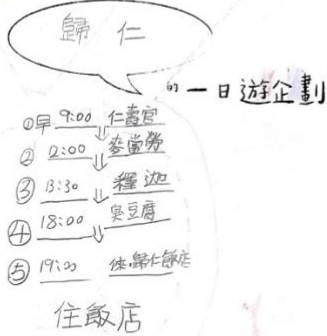 歸仁
的一日遊企劃
①早 9:00 仁壽宮
② 12:00 麥當勞
③ 13:30 釋迦
④ 18:00 臭豆腐
⑤ 19:00 徠歸仁飯店
住飯店